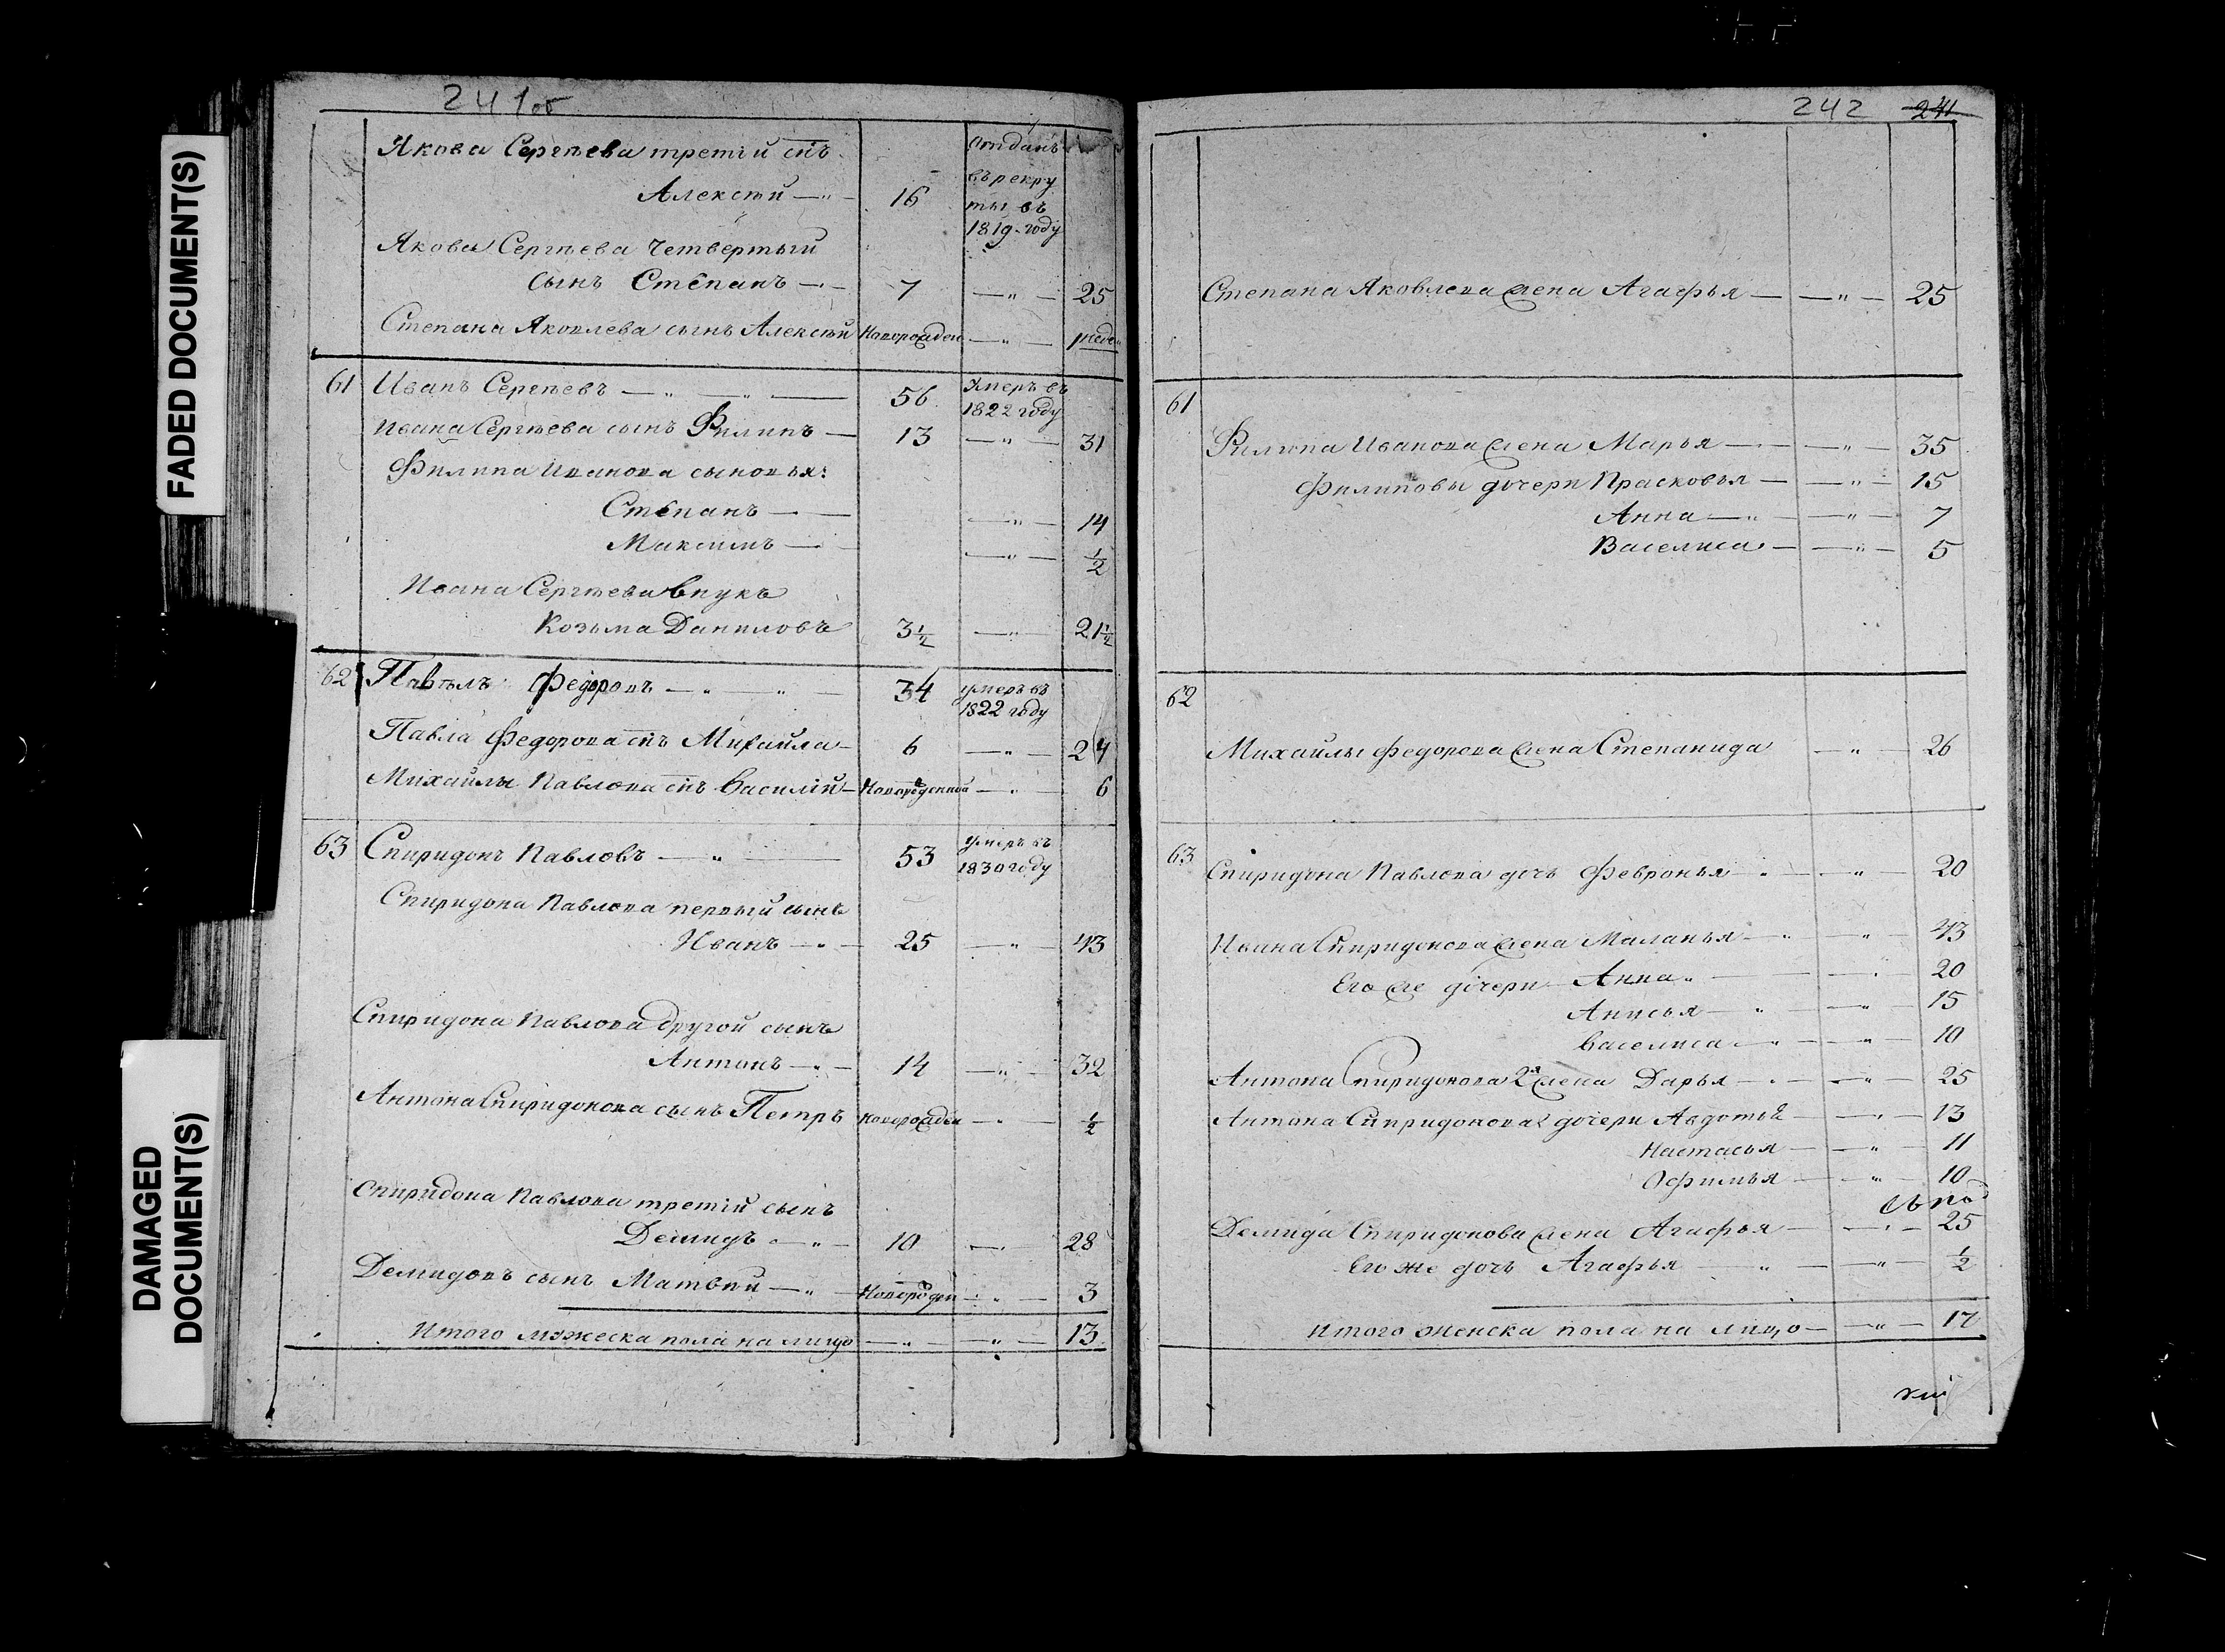 FADED DOCUMENT(S)
DAMAGED
DOCUMENT(S)
241об
Якова Сергѣева третій снъ
Алексѣй — 16 отданъ
въ рекру
ты въ
1819 году
Якова Сергѣева четвертый
сынъ Степанъ — 7 — " — 25
Степана Яковлева сынъ Алексѣй новорожден — " —
61 Иванъ Сергѣевъ — " — " — 56 умеръ въ
1822 году
Ивана Сергѣева сынъ Филипъ — 13 — " — 31
Филипа Иванова сыновья:
Степанъ — — " — 14
Максимъ — — " — ½
Ивана Сергѣева внукъ
Козьма Даниловъ 3½ — " — 21½
62 Павѣлъ Федоровъ — " — " — 34 умеръ въ
1822 году
Павла Федорова снъ Михайла — 6 — " — 24
Михайлы Павлова снъ Василій — новорожденной — " — 6
63 Спиридонъ Павловъ — " — 53 умеръ въ
1830 году
Спиридона Павлова первый сынъ
Иванъ — " — 25 — " — 43
Спиридона Павлова другой сынъ
Антонъ — " — 14 — " — 32
Антона Спиридонова сынъ Петръ новорожден — " — ½
Спиридона Павлова третій сынъ
Демидъ — " — 10 — " — 28
Демидовъ сынъ Матвѣй — " — новорожден — " — 3
Итого мужеска пола на лицо — " — " — 13
242 241
Степана Яковлева жена Агафья — — " — 25
61
Филипа Иванова жена Марья — — " — 35
Филиповы дочери Прасковья — — " — 15
Анна — " — — " — 7
Василиса — — " — 5
62
Михайлы Федорова жена Степанида — " — 26
63
Спиридона Павлова дочь Февронья — " — " — 20
Ивана Спиридонова жена Маланья — " — " — 43
Его же дочери Анна " — — " — 20
Анисья — " — " — 15
Василиса — " — " — 10
Антона Спиридонова 2я жена Дарья — " — " — 25
Антона Спиридонова дочери Авдотья — " — 13
Настасья — " — 11
Офимья — " — 10
Демида Спиридонова жена Агафья — " — 25
Его же дочь Агафья — " — " — ½
Итого женска пола на лицо — " — 17